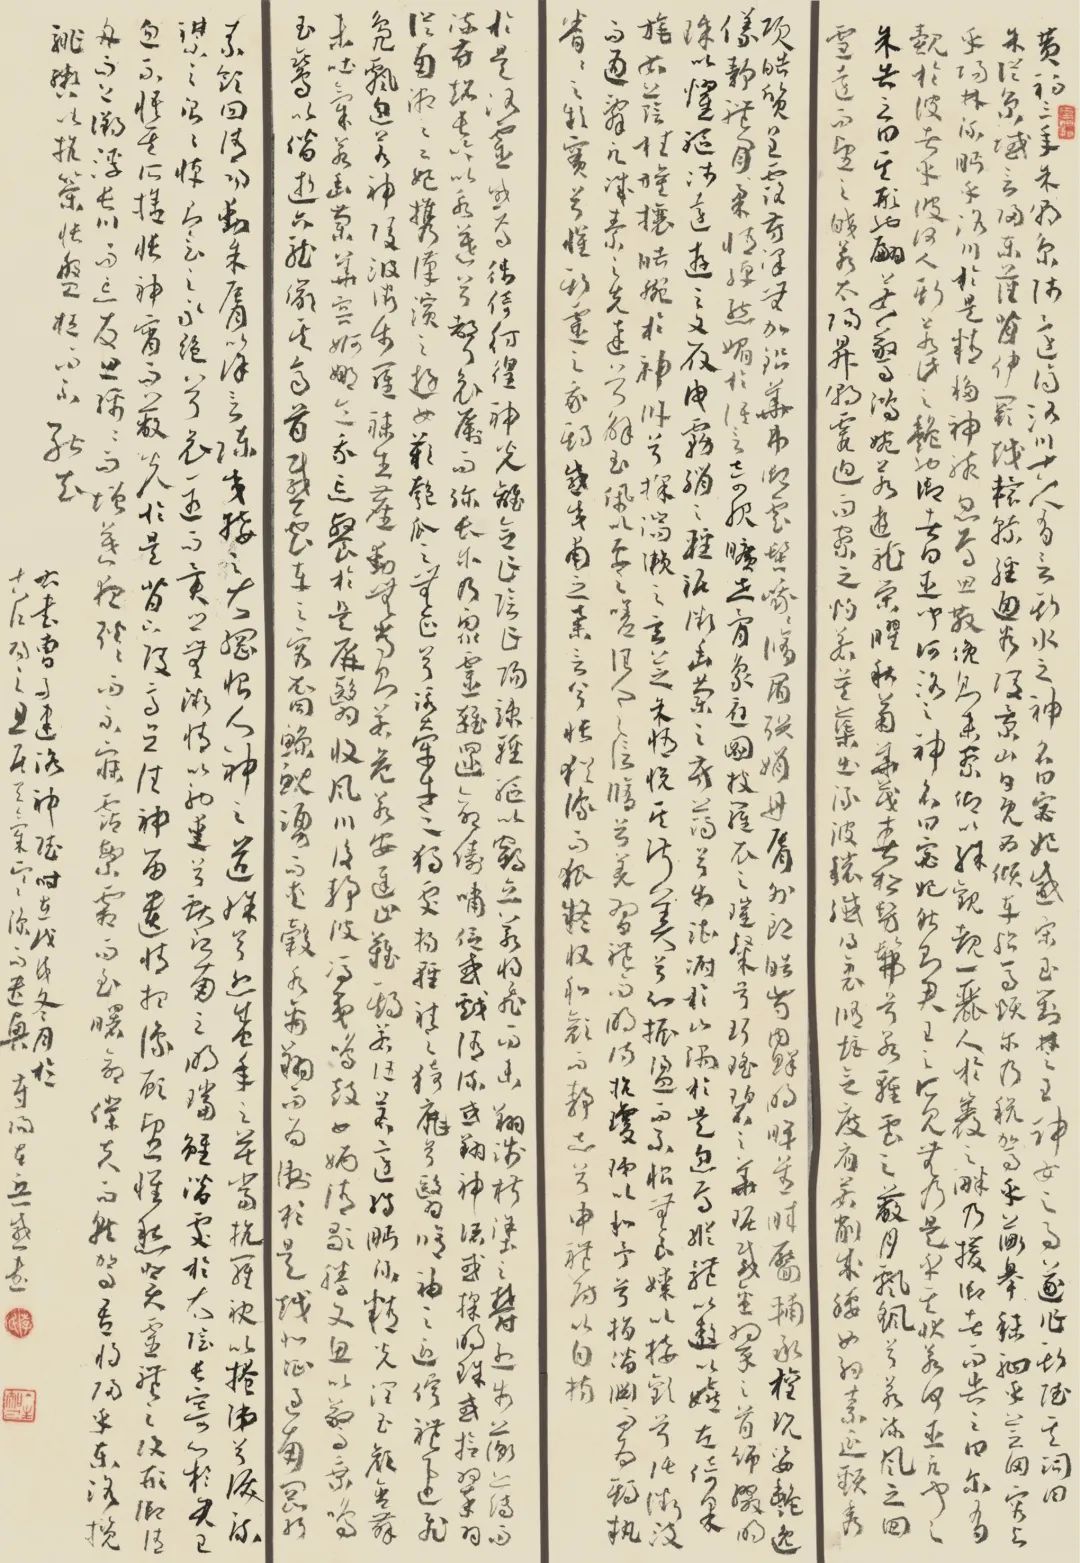 黄初三年余朝京师还济洛川古人有言斯水之神名曰宓妃感宋玉对楚王神女之事遂作斯赋其词曰
余从京域言归东藩背伊阙越轘辕经通谷陵景山日既西倾车殆马烦尔乃税驾乎蘅皋秣驷乎芝田容与
乎阳林流眄乎洛川于是精移神骇忽焉思散俯则未察仰以殊观睹一丽人于岩之畔乃援御者而告之曰尔有
觌于彼者乎彼何人斯若此之艳也御者对曰臣闻河洛之神名曰宓妃然则君王之所见无乃是乎其状若何臣愿闻之
余告之曰其形也翩若惊鸿婉若游龙荣曜秋菊华茂春松髣髴兮若轻云之蔽月飘飖兮若流风之回
雪远而望之皎若太阳升朝霞迫而察之灼若芙蕖出渌波秾纤得衷修短合度肩若削成腰如约素延颈秀
项皓质呈露芳泽无加铅华弗御云髻峨峨修眉联娟丹唇外朗皓齿内鲜明眸善睐靥辅承权瑰姿艳逸
仪静体闲柔情绰态媚于语言奇服旷世骨象应图披罗衣之璀粲兮珥瑶碧之华琚戴金翠之首饰缀明
珠以耀躯践远游之文履曳雾绡之轻裾微幽兰之芳蔼兮步踟蹰于山隅于是忽焉纵体以遨以嬉左倚采
旄右荫桂旗攘皓腕于神浒兮采湍濑之玄芝余情悦其淑美兮心振荡而不怡无良媒以接欢兮托微波
而通辞愿诚素之先达兮解玉佩以要之嗟佳人之信修兮羌习礼而明诗抗琼珶以和予兮指潜渊而为期执
眷眷之款实兮惧斯灵之我欺感交甫之弃言兮怅犹豫而狐疑收和颜而静志兮申礼防以自持
于是洛灵感焉徙倚彷徨神光离合乍阴乍阳竦轻躯以鹤立若将飞而未翔践椒涂之郁烈步蘅薄而
流芳超长吟以永慕兮声哀厉而弥长尔乃众灵杂遝命俦啸侣或戏清流或翔神渚或采明珠或拾翠羽
从南湘之二妃携汉滨之游女叹匏瓜之无匹兮咏牵牛之独处扬轻袿之猗靡兮翳修袖以延伫体迅飞
凫飘忽若神陵波微步罗袜生尘动无常则若危若安进止难期若往若还转眄流精光润玉颜含辞
未吐气若幽兰华容婀娜令我忘餐于是屏翳收风川后静波冯夷鸣鼓女娲清歌腾文鱼以警乘鸣
玉鸾以偕逝六龙俨其齐首载云车之容裔鲸鲵踊而夹毂水禽翔而为卫于是越北沚过南冈纡
素领回清阳动朱唇以徐言陈交接之大纲恨人神之道殊兮怨盛年之莫当抗罗袂以掩涕兮泪流
襟之浪浪悼良会之永绝兮哀一逝而异乡无微情以效爱兮献江南之明珰虽潜处于太阴长寄心于君王
忽不悟其所舍怅神宵而蔽光于是背下陵高足往神留遗情想像顾望怀愁冀灵体之复形御轻
舟而上溯浮长川而忘反思绵绵而增慕夜耿耿而不寐沾繁霜而至曙命仆夫而就驾吾将归乎东路揽
騑辔以抗策怅盘桓而不能去
右书曹子建洛神赋时在戊戌冬月于